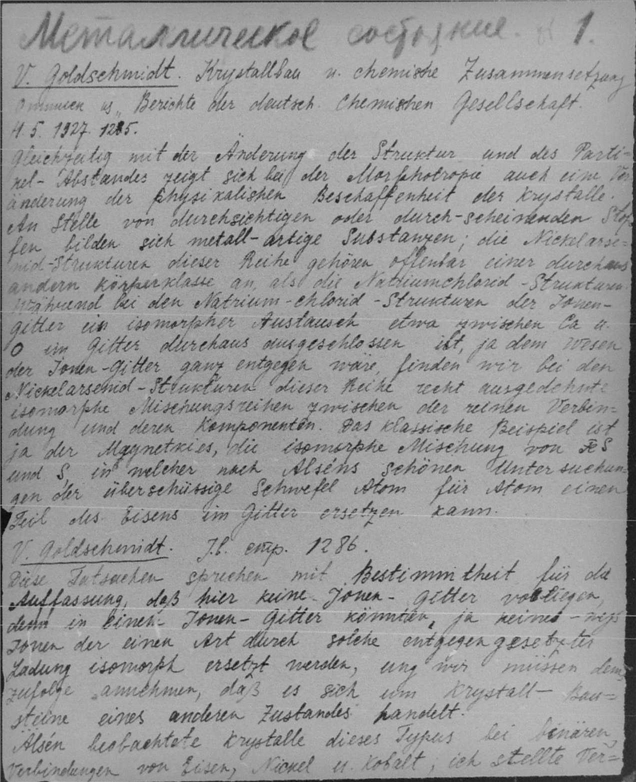 Металлическое состояние. 1.
V. Goldschmidt. Krystallbau u. chemische Zusammensetzung
"Berichte der deutsch. Chemischen Gesellschaft.
4. 5. 1927. 1285.
Gleichzeitig mit der Änderung der Struktur und des Parti-
kel-Abstandes zeigt sich bei der Morphotropie auch eine Ver-
änderung der physikalischen Beschaffenheit der Krystalle.
An Stelle von durchsichtigen oder durch-scheinenden Stof-
fen bilden sich metall-artige Substanzen; die Nickelarse-
nid-Strukturen dieser Reihe gehören offenbar einer durchaus
andern Körperklasse an, als die Natriumchlorid-Strukturen
Während bei den Natrium-chlorid-Strukturen der Ionen-
gitter ein isomorpher Austausch etwa zwischen Ca u.
O im Gitter durchaus ausgeschlossen ist, ja dem Wesen
der Jonen-Gitter ganz entgegen wäre, finden wir bei den
Nickelarsenid-Strukturen dieser Reihe recht ausgedehnte
isomorphe Mischungsreihen zwischen der reinen Verbin-
dung und deren Komponenten. Das klassische Beispiel ist
ja der Magnetkies, die isomorphe Mischung von FeS
und S, in welcher nach Alséns schönen Untersuchun
gen der überschüssige Schwefel Atom für Atom einen
Teil des Eisens im Gitter ersetzen kann.
V. Goldschmidt. стр. 1286.
Diese Tatsachen sprechen mit Bestimmtheit für die
Auffassung, daß hier keine Jonen-Gitter vorliegen,
denn in einem Jonen-Gitter könnten ja keines-wegs
Jonen der einen Art durch solche entgegengesetzter
Ladung isomorph ersetzt werden, und wir müssen dem
zufolge annehmen, daß es sich um Krystall-Bau-
steine eines anderen Zustandes handelt.
Alsén beobachtete Krystalle dieses Typus bei binären
Verbindungen von Eisen, Nickel u. Kobalt, ich stellte Ver-